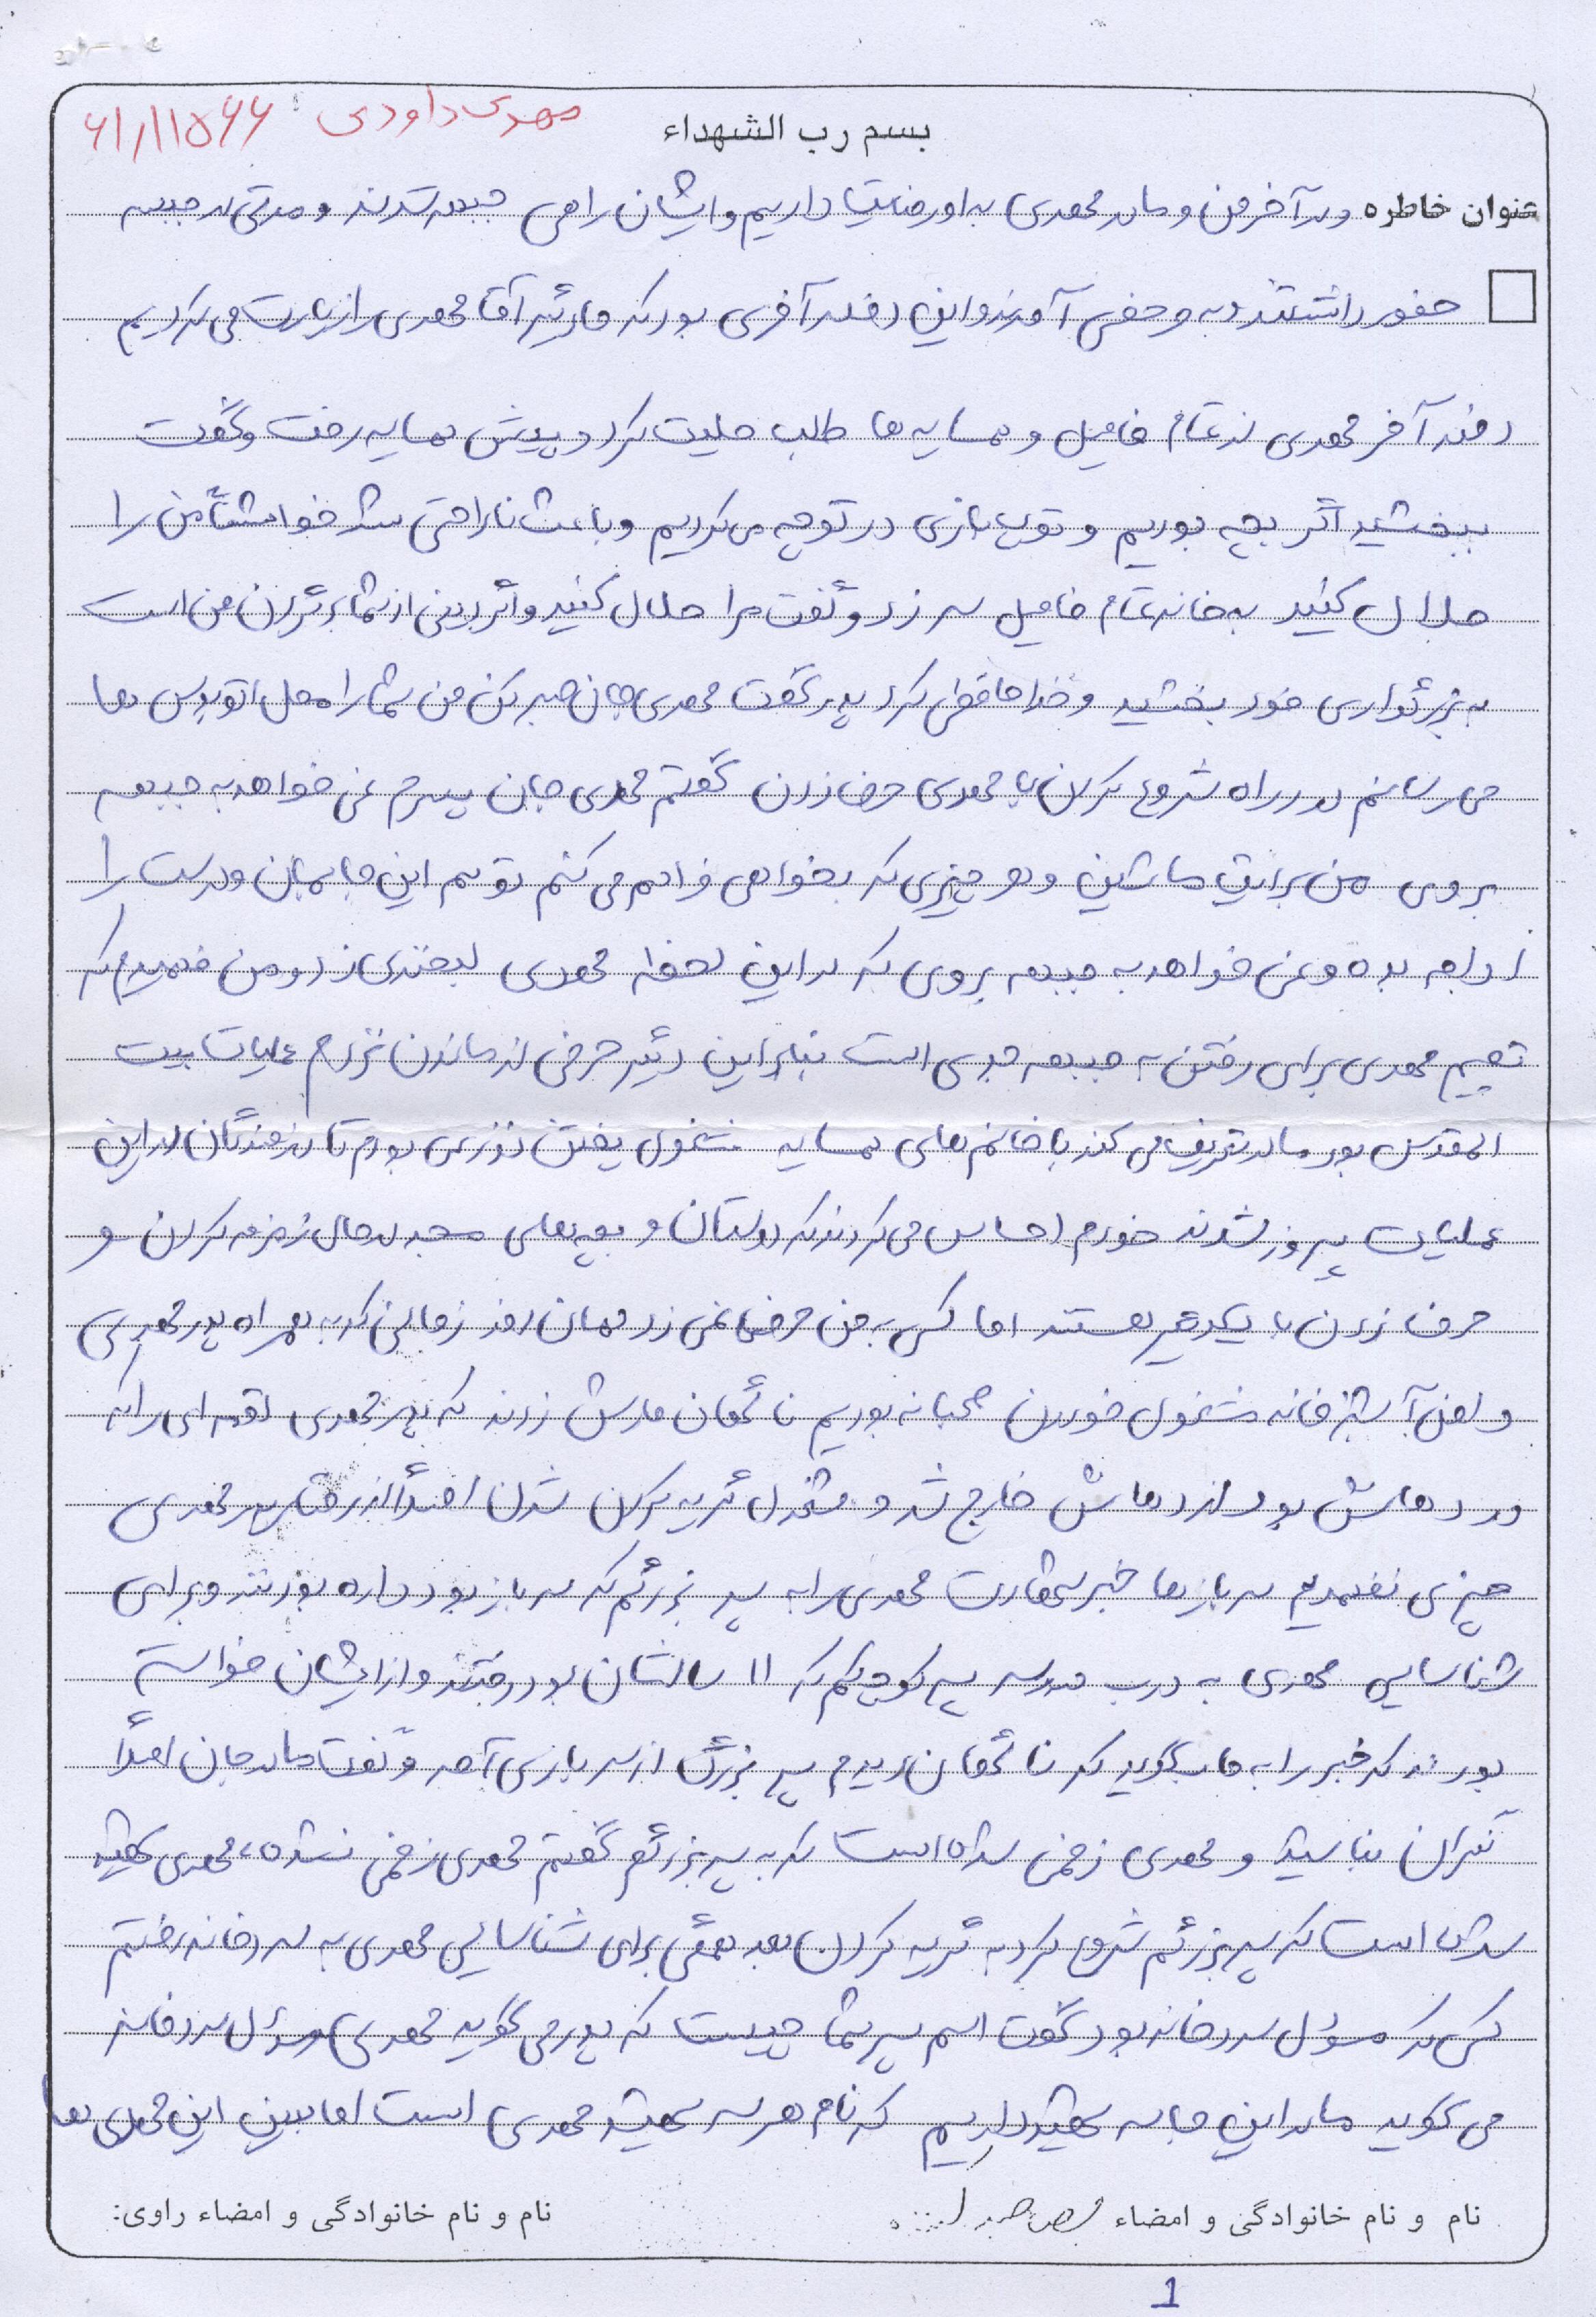 مهدی داودی: ۶۱/۱۱۵۶۶
بسم رب الشهداء
عنوان خاطره ودر آخر من و مادر مهدی به او رضایت دادیم و ایشان راهی جبهه شدند و مدتی در جبهه
حضور داشتند و به مرخصی آمدند و این دفعه آخری بود که ما دیگر آقا مهدی را زیارت می کردیم
دفعه آخر مهدی از تمام فامیل و همسایه ها طلب حلیت کرد و پیش همسایه رفت و گفت
ببخشید اگر بچه بودیم و توپ بازی در کوچه می کردیم و باعث ناراحتی شد خواهشاً من را
حلال کنید به خانه تمام فامیل سر زد و گفت مرا حلال کنید و اگر دینی از شما بر گردن من است
به بزرگواری خود ببخشید و خداحافظی کرد پدر گفت مهدی جان صبر کن من شما را محل اتوبوس ها
می رسانم در راه شروع کردن با مهدی حرف زدن گفتم مهدی جان پسرم نمی خواهد به جبهه
بروی من برایت ماشین و هر چیزی که بخواهی فراهم می کنم تو هم این جا بمان و درست را
ادامه بده و نمی خواهد به جبهه بروی که در این لحظه مهدی لبخندی زد و من فهمیدم که
تصمیم مهدی برای رفتن به جبهه جدی است بنابراین دیگر حرفی از ماندن نزدم عملیات بیت
المقدس بود مادر تعریف می کند با خانم های همسایه مشغول پختن نذری بودم تا رزمندگان در این
عملیات پیروز شدند خودم احساس می کردند که دوستان و بچه های مسجد در حال زمزمه کردن و
حرف زدن با یکدیگر هستند اما کسی به من حرف نمی زد همان روز زمانی که به همراه پدر مهدی
داخل آشپزخانه مشغول خوردن صبحانه بودیم ناگهان مارش زدند که پدر مهدی لقمه ای را که
در دهانش بود از دهانش خارج شد و مشغول گریه کردن شدن اصلاً از رفتار پدر مهدی
چیزی نفهمیدم سربازها خبر شهادت مهدی را به پسر بزرگم که سرباز بود داده بودند و برای
شناسایی مهدی به درب مدرسه پسر کوچکم که ۱۱ سالشان بود رفتند و از ایشان خواسته
بودند که خبر را به ما بگوید که ناگهان دیدم پسر بزرگ از سربازی آمد و گفت مادر جان اصلاً
نگران نباشید و مهدی زخمی شده است که به پسر بزرگم گفتم مهدی زخمی نشده، مهدی شهید
شده است که پسر بزرگم شروع کرد به گریه کردن بعد همگی برای شناسایی مهدی به سردخانه رفتیم
کسی که مسؤل سردخانه بود گفت اسم پسر شما چیست که پدر می گوید مهدی مسؤل سردخانه
می گوید ما در این جا سه شهید داریم که نام هر سه شهید مهدی است اما ببین این مهدی ها
نام و نام خانوادگی و امضاء
نام و نام خانوادگی و امضاء راوی:
1